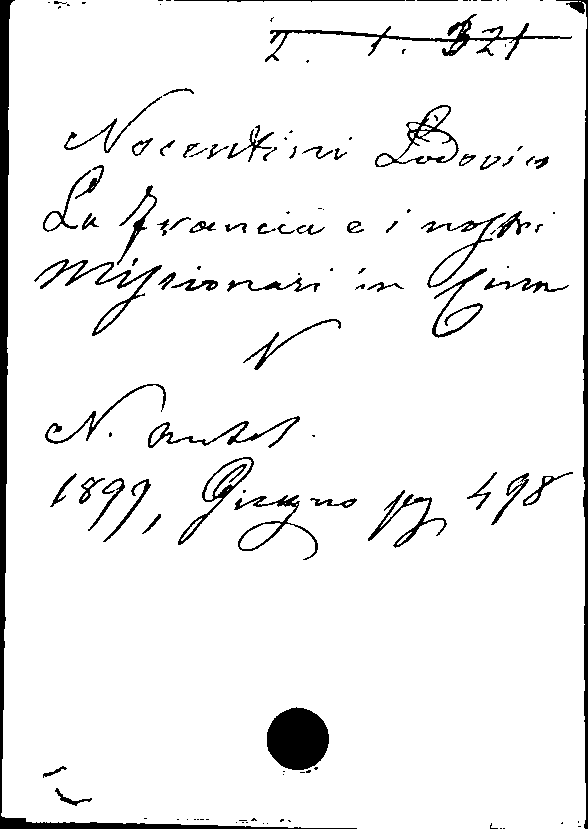 2. 1. B21
Nocentini Lodovico
La Francia e i nostri
Missionari in Cina
N
N. Antol.
1899, Giugno pg 498